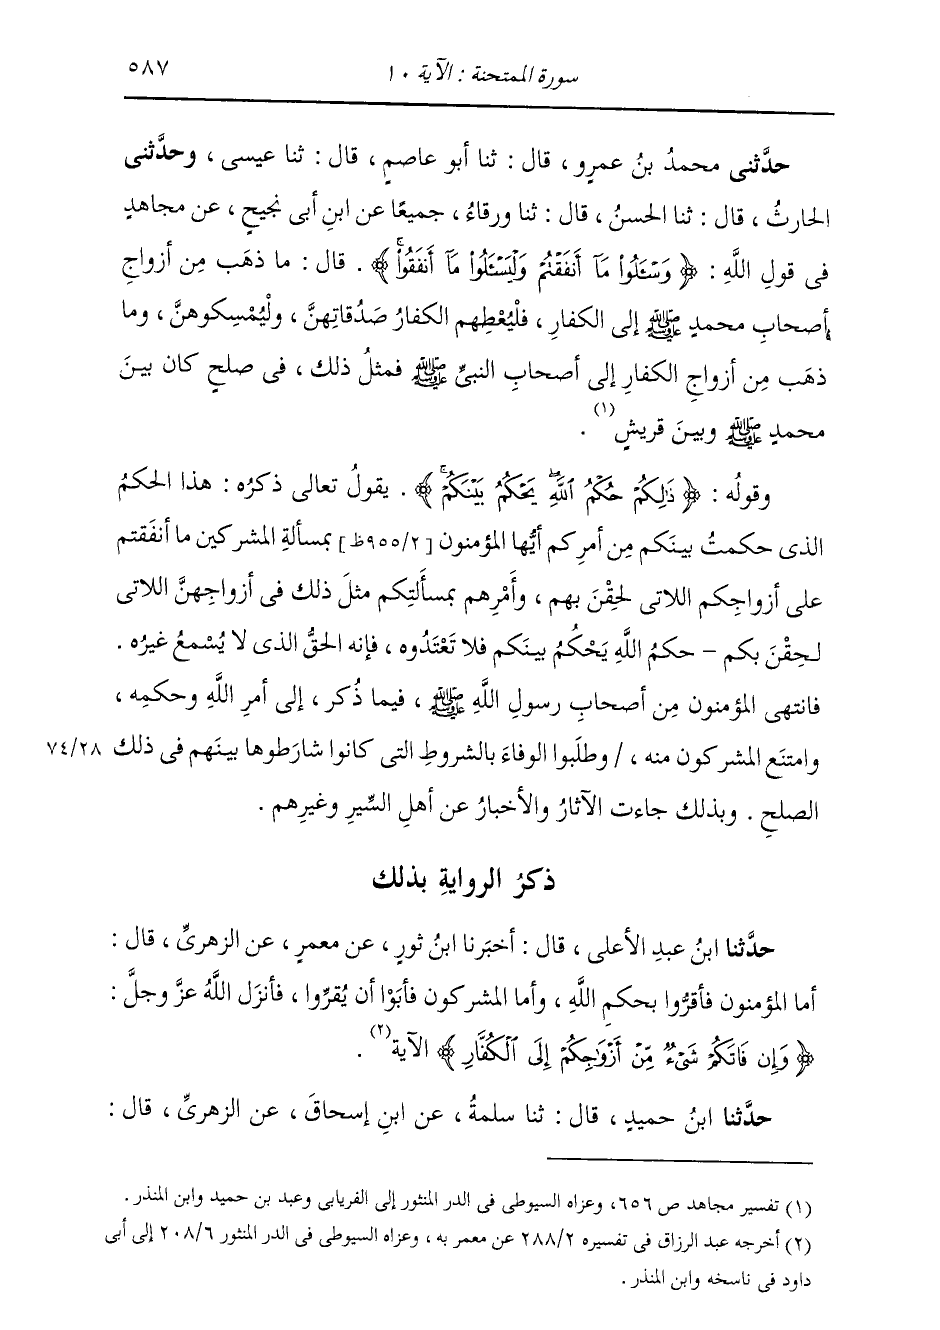 سورة الممتحنة : الآية ١٠
٥٨٧
حدَّثنى محمدُ بنُ عمرٍو ، قال : ثنا أبو عاصمٍ ، قال : ثنا عيسى ، وحدَّثنى
الحارثُ ، قال : ثنا الحسنُ ، قال : ثنا ورقاءُ ، جميعًا عن ابنِ أبى نجيحٍ ، عن مجاهدٍ
فى قولِ اللَّهِ : ﴿ وَسْـَٔلُوا۟ مَآ أَنفَقْتُمْ وَلْيَسْـَٔلُوا۟ مَآ أَنفَقُوا۟ۚ ﴾ . قال : ما ذهَب مِن أزواجِ
أصحابِ محمدٍ ﷺ إلى الكفارِ ، فلْيُعْطِهم الكفارُ صَدُقاتِهنَّ ، ولْيُمْسِكوهنَّ ، وما
ذهَب مِن أزواجِ الكفارِ إلى أصحابِ النبىِّ ﷺ فمثلُ ذلك ، فى صلحٍ كان بينَ
محمدٍ ﷺ وبينَ قريشٍ (١) .
وقولُه : ﴿ ذَٰلِكُمْ حُكْمُ ٱللَّهِۖ يَحْكُمُ بَيْنَكُمْۚ ﴾ . يقولُ تعالى ذكرُه : هذا الحكمُ
الذى حكمتُ بينَكم مِن أمرِكم أيُّها المؤمنون [ ٩٥٥/٢ظ ] بمسألةِ المشركين ما أنفَقتم
على أزواجِكم اللاتى لحِقْنَ بهم ، وأَمْرِهم بمسأَلتِكم مثلَ ذلك فى أزواجِهنَّ اللاتى
لحِقْنَ بكم – حكمُ اللَّهِ يَحْكُمُ بينَكم فلا تَعْتَدُوه ، فإنه الحقُّ الذى لا يُسْمعُ غيرُه .
فانتهى المؤمنون مِن أصحابِ رسولِ اللَّهِ ﷺ ، فيما ذُكر ، إلى أمرِ اللَّهِ وحكمِه ،
وامتنَع المشركون منه ، / وطلَبوا الوفاءَ بالشروطِ التى كانوا شارَطوها بينَهم فى ذلك ٧٤/٢٨
الصلحِ . وبذلك جاءت الآثارُ والأخبارُ عن أهلِ السِّيرِ وغيرِهم .
ذكرُ الروايةِ بذلك
حدَّثنا ابنُ عبدِ الأعلى ، قال : أخبَرنا ابنُ ثورٍ ، عن معمرٍ ، عن الزهرىِّ ، قال :
أما المؤمنون فأقرُّوا بحكمِ اللَّهِ ، وأما المشركون فأبَوْا أن يُقرُّوا ، فأنزَل اللَّهُ عزَّ وجلَّ :
﴿ وَإِن فَاتَكُمْ شَىْءٌ مِّنْ أَزْوَٰجِكُمْ إِلَى ٱلْكُفَّارِ ﴾ الآية (٢) .
حدَّثنا ابنُ حميدٍ ، قال : ثنا سلمةُ ، عن ابنِ إسحاقَ ، عن الزهرىِّ ، قال :
(١) تفسير مجاهد ص ٦٥٦، وعزاه السيوطى فى الدر المنثور إلى الفريابى وعبد بن حميد وابن المنذر .
(٢) أخرجه عبد الرزاق فى تفسيره ٢٨٨/٢ عن معمر به ، وعزاه السيوطى فى الدر المنثور ٢٠٨/٦ إلى أبى
داود فى ناسخه وابن المنذر .